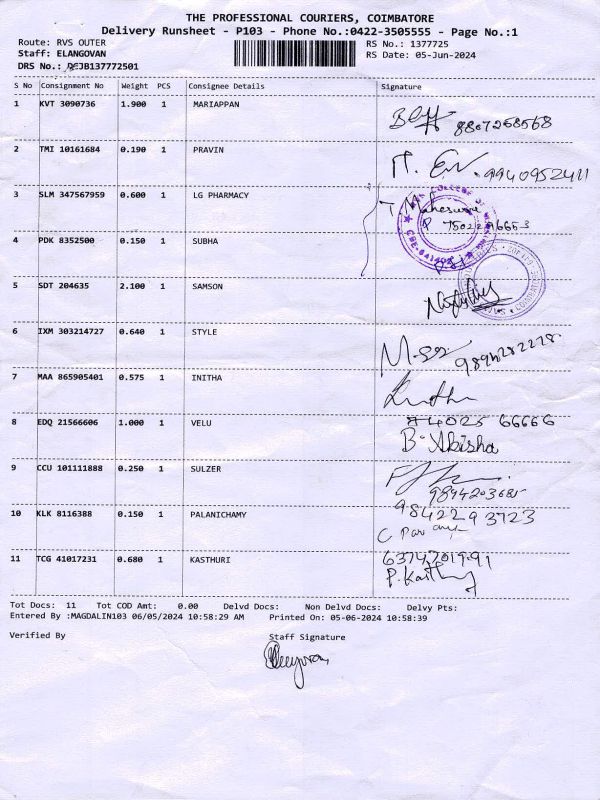 THE PROFESSIONAL COURIERS, COIMBATORE
Delivery Runsheet - P103 - Phone No.:0422-3505555 - Page No.:1
Route: RVS OUTER RS No.: 1377725
Staff: ELANGOVAN RS Date: 05-Jun-2024
DRS No.: JB137772501
S No Consignment No Weight PCS Consignee Details Signature
1 KVT 3090736 1.900 1 MARIAPPAN
8807268568
2 TMI 10161684 0.190 1 PRAVIN
9940952411
3 SLM 347567959 0.600 1 LG PHARMACY
T Maheswari
P 7502296653
4 PDK 8352500 0.150 1 SUBHA
5 SDT 204635 2.100 1 SAMSON
6 IXM 303214727 0.640 1 STYLE
9894282228
7 MAA 865905401 0.575 1 INITHA
8 EDQ 21566606 1.000 1 VELU
74025 66666
B. Abisha
9 CCU 101111888 0.250 1 SULZER
9894203685
10 KLK 8116388 0.150 1 PALANICHAMY
9842293723
11 TCG 41017231 0.680 1 KASTHURI
6374701991
P. Kasthuri
Tot Docs: 11 Tot COD Amt: 0.00 Delvd Docs: Non Delvd Docs: Delvy Pts:
Entered By :MAGDALIN103 06/05/2024 10:58:29 AM Printed On: 05-06-2024 10:58:39
Verified By Staff Signature